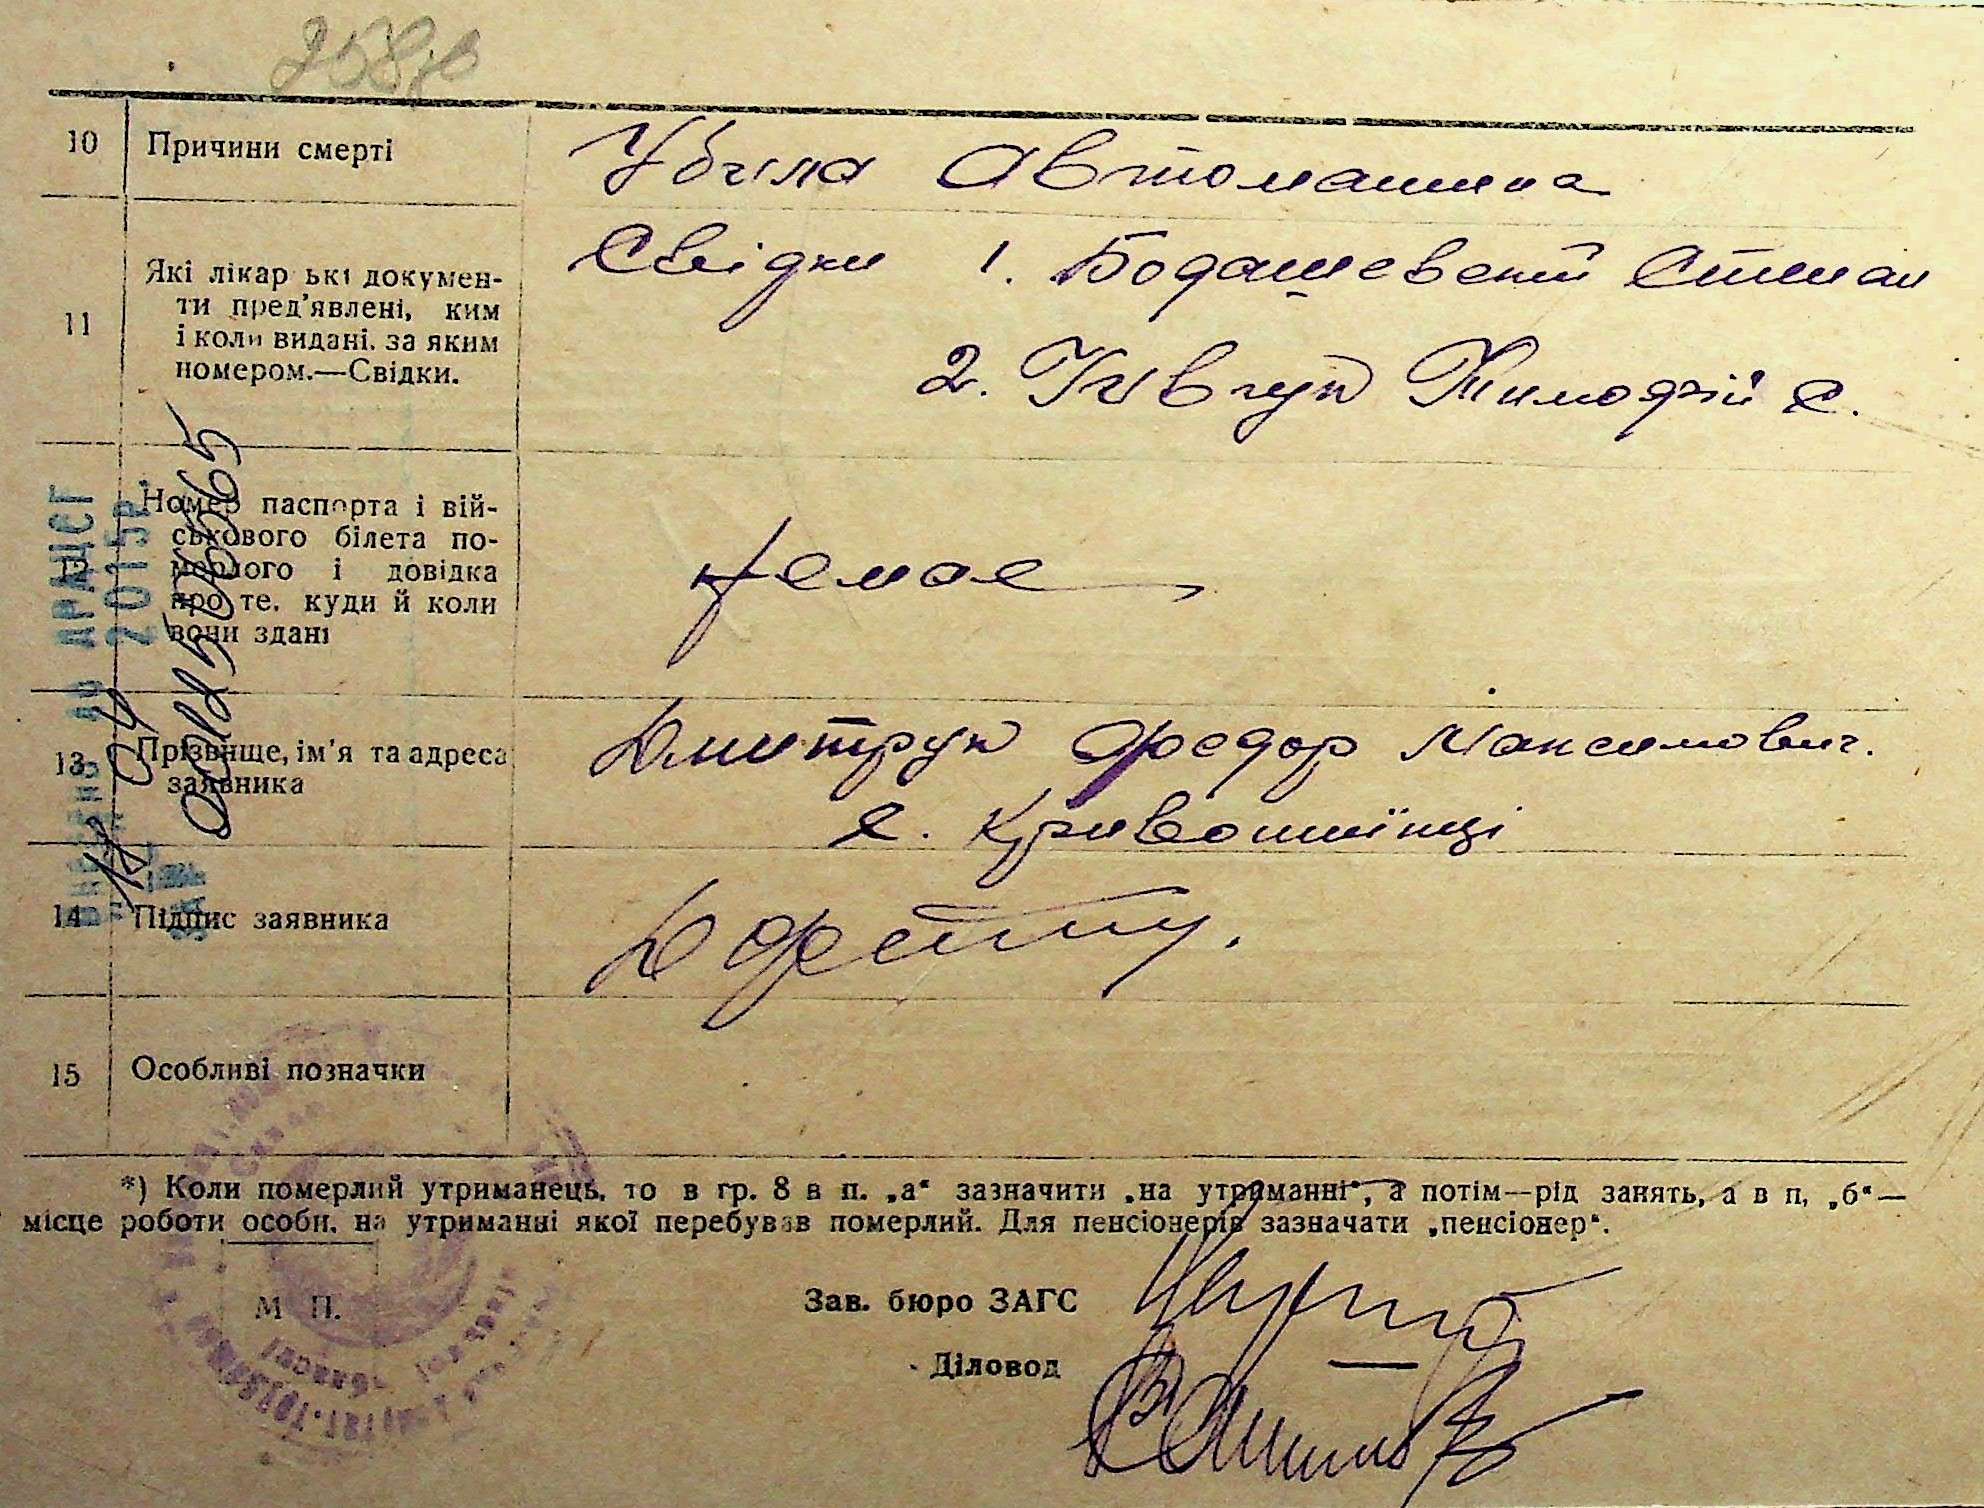 10 Причини смерті Убила Автомашина
11 Які лікар ькі докумен-
ти пред'явлені, ким
і коли видані. за яким
номером.—Свідки.
Свідки 1. Бодашевский Степан
2. Тимофій С.
12 Номер паспорта і вій-
ськового білета по-
мерлого і довідка
про те. куди й коли
вони здані
немає
13 Прізвище, ім'я та адреса
заявника
Дмитрук Федор Максимович.
с. Кривошиїнці
14 Підпис заявника
15 Особливі позначки
*) Коли померлий утриманець. то в гр. 8 в п. „а“ зазначити „на утриманні“, а потім—рід занять, а в п, „б“—
місце роботи особи. на утриманні якої перебував померлий. Для пенсіонерів зазначати „пенсіонер“.
М П.
Зав. бюро ЗАГС
Діловод
ДО ДРАЦСГ
2015р.
18 04